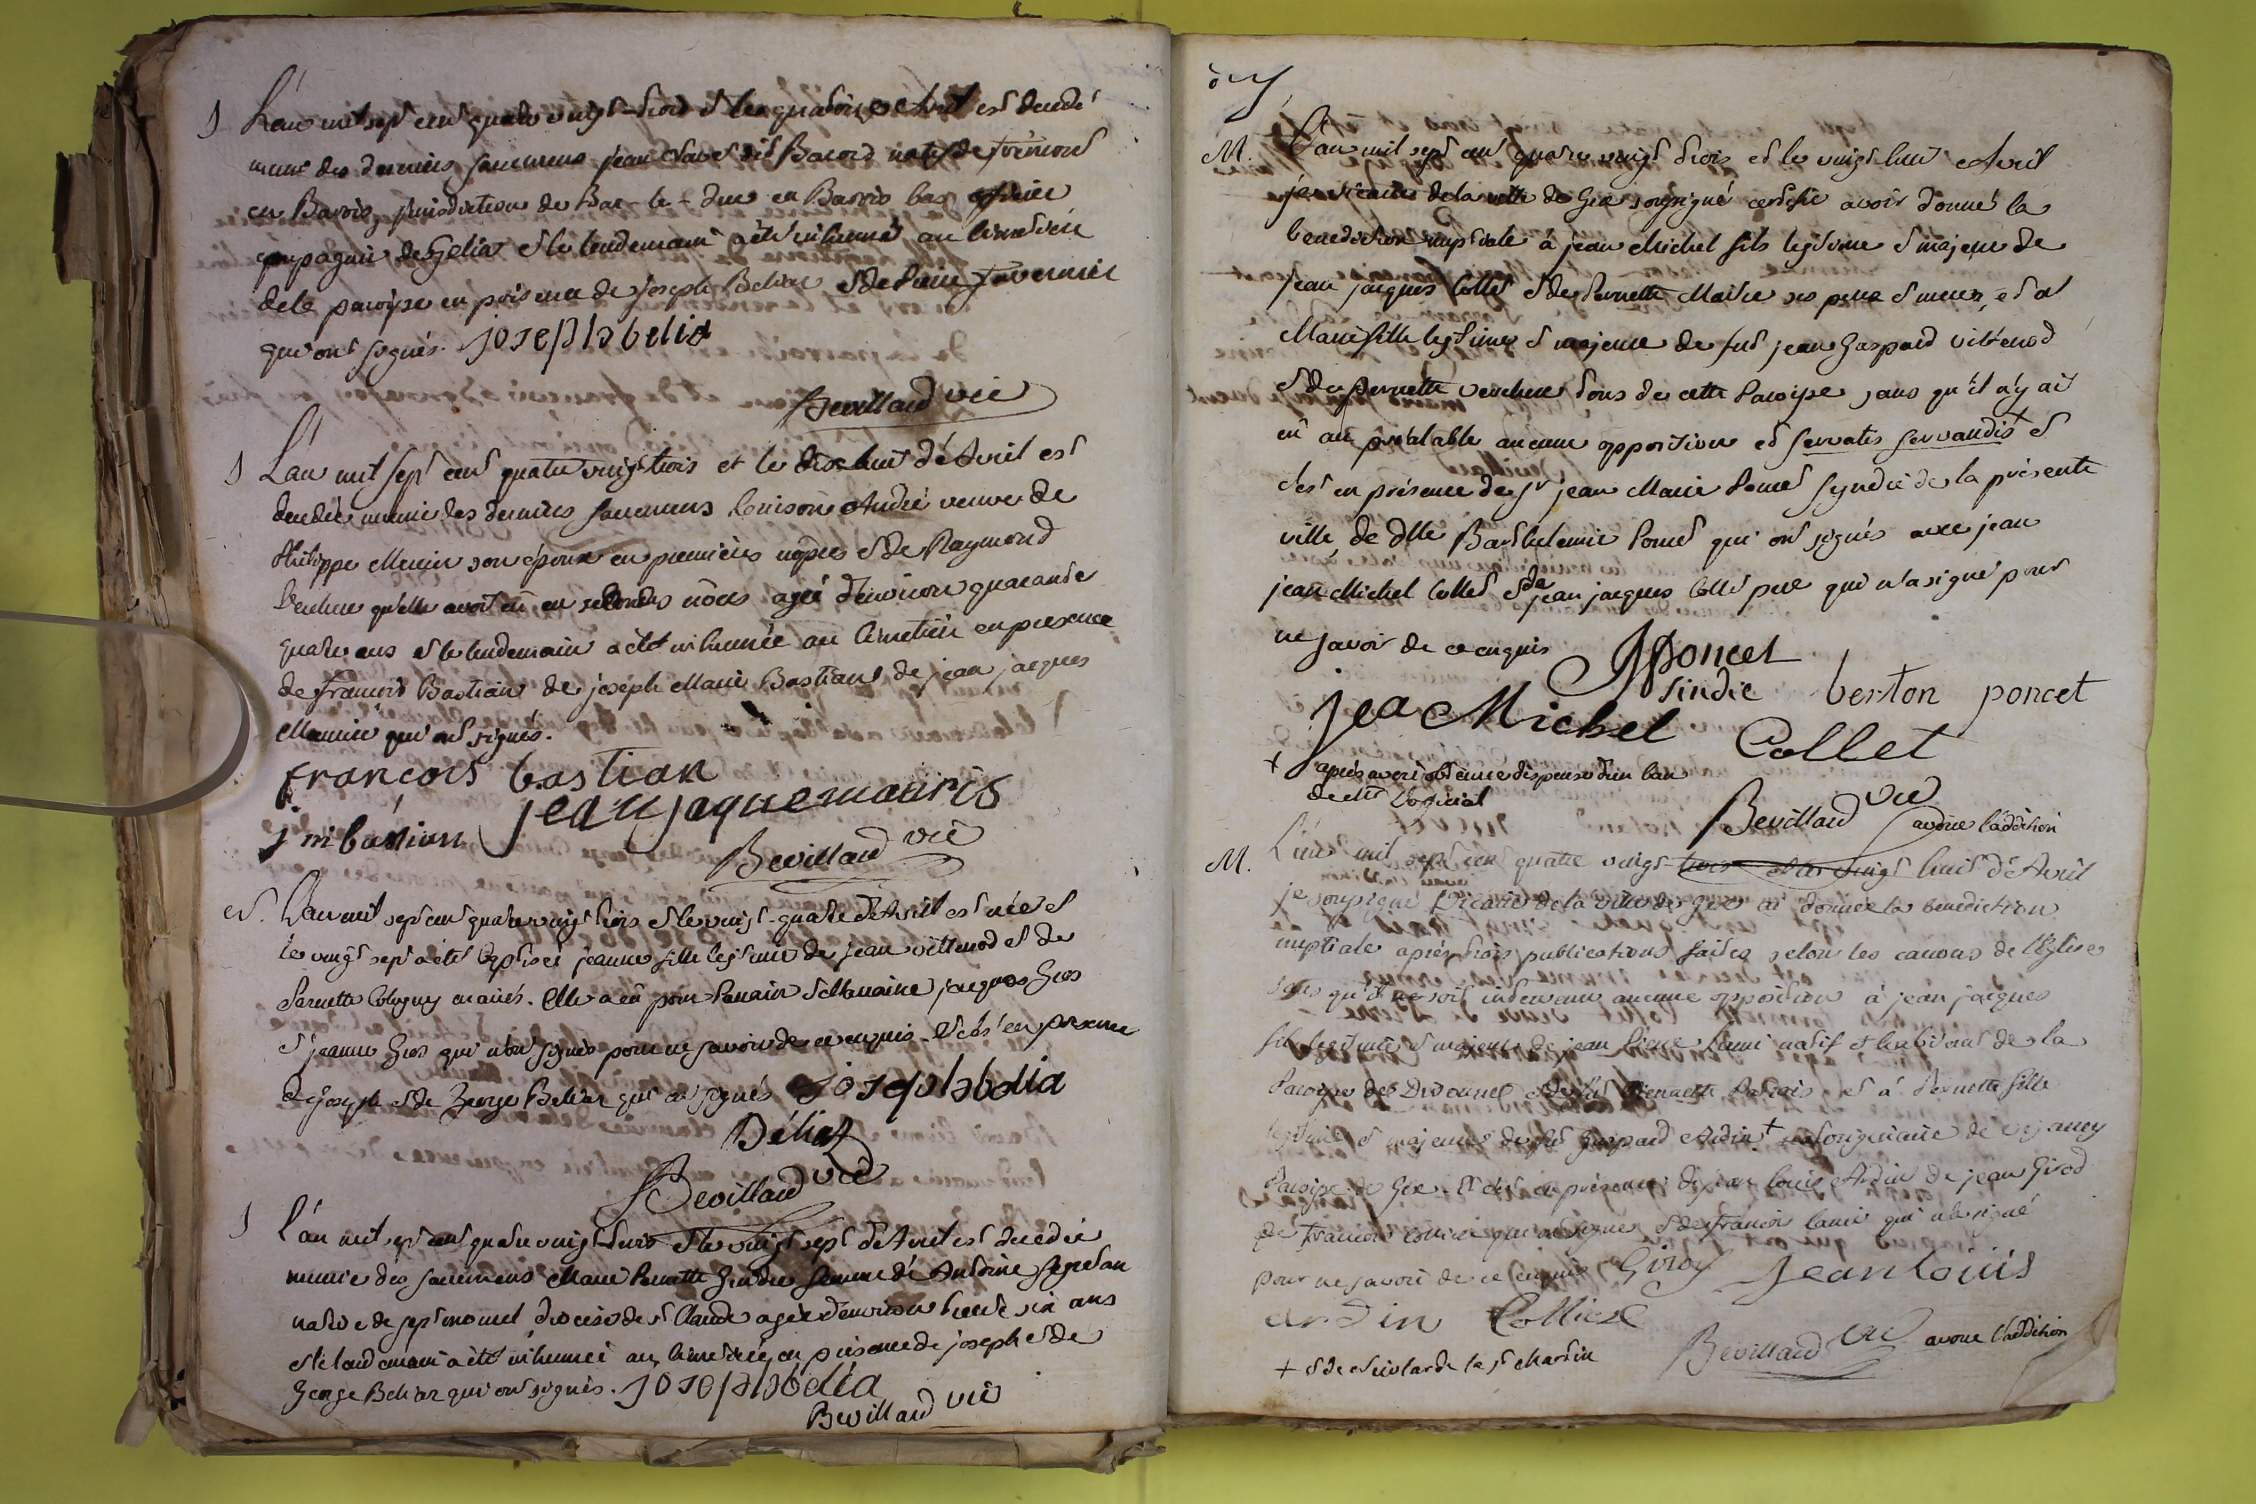 S L'an mil sept cent quatre vingt trois et les quatorze Avril est décédé
muni des derniers sacremens jean dit Bacord natif de Trémont
en Barrois jurisdiction de Bar-le-duc en Barrois bas officier
compagnie de et le lendemain a été inhumé au cimetière
de la paroisse en présence de joseph Beliaz et de Pierre Tavernier
qui ont signés. joseph belia
Bevillard vic
S L'an mil sept cent quatre vingt trois et le dix huit d'Avril est
décédée munie des derniers sacremens Louison André veuve de
Philippe Meunier son époux en premières nopces et de Raymond
Verchere qu'elle avoit eû en secondes nôces agée d'environ quarante
quatre ans et le lendemain a été inhumée au cimetière en présence
de françois Bastian de joseph Marie Bastian et de jean jacques
Maurier qui ont signés.
françois bastian
j m bastian jean jaque mauris
Bevillard vic
N. L'an mil sept cent quatre vingt trois et le vingt-quatre d'Avril est née et
le vingt sept a été baptisée jeanne fille legitime de jean villenod et de
Pernette Cologny mariés. Elle a eû pour Parrain et Marraine jacques Gros
et jeanne Gros qui n'ont signés pour ne savoir de ce enquis. Et c'est en présence
de joseph et de George Beliaz qui ont signés joseph belia
Béliaz
Bevillard vic
S L'an mil sept cent quatre vingt trois et le vingt sept d'Avril est décédée
munie des sacremens Marie Pernette femme de Antoine
native de septmoncel diocèse de St Claude agée d'environ trente six ans
et le lendemain a été inhumée au cimetière en présence de joseph et de
George Beliaz qui ont signés. joseph belia
Bevillard vic
M. L'an mil sept cent quatre vingt trois et le vingt huit Avril
je vicaire de la ville de Gex soussigné certifie avoir donné la
benediction nuptiale à jean Michel fils legitime et majeur de
jean jacques Collet et de Pernette Maitre ses pere et mere, et à
Marie fille legitime et majeure de fut jean Gaspard villenod
et de Pernette verchere tous de cette Paroisse, sans qu'il n'y ait
eû au préalable aucune opposition et servatis servandis + et
c'est en présence de Sr jean Marie Poncet syndic de la présente
ville, de dlle Barthelemie Poncet qui ont signés avec jean
jean Michel Collet et de jean jacques Collet pere qui n'a signé pour
ne savoir de ce enquis
JPoncet
sindic berton poncet
jea Michel Collet
+ après avoir obtenue dispense d'un ban
de Mr l'official
Bevillard vic
avoue l'addition
M. L'an mil sept cent quatre vingt trois et le vingt huit d'Avril
je soussigné Vicaire de la ville de Gex ai donnée la benediction
nuptiale après trois publications faites selon les canons de l'Eglise
sans qu'il ne soit intervenu aucune opposition à jean jacques
fils legitime et majeur de jean Pierre Lami natif et habitant de la
Paroisse de Divonne et de fut Pernette et à Pernette fille
legitime et majeure de fut Gaspard Ardin + originaire de
Paroisse de Gex. Et c'est en présence de jean louis Ardin de jean Girod
de françois Collier qui ont signés et de françois lami qui n'a signé
pour ne savoir de ce enquis Girod jean louis
ardin Collier
Bevillard vic avoue l'addition
+ et de la St Martin